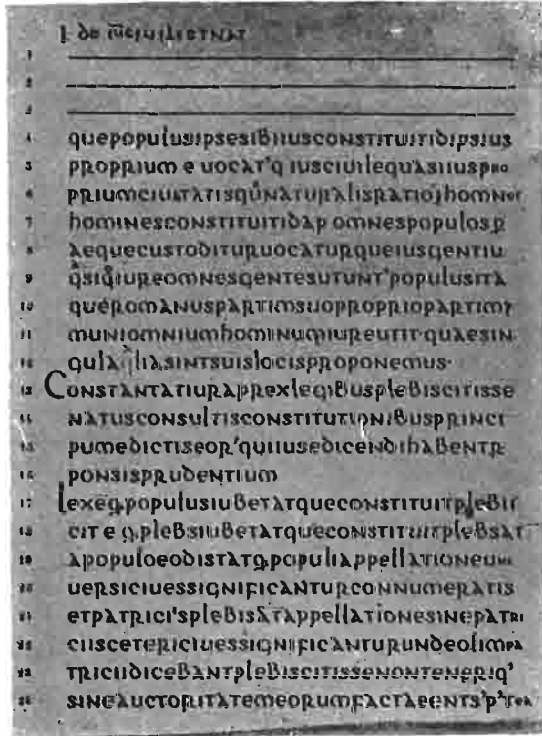 I de iuciuiliETNAT
1
2
3
4 quepopulusipsesibiiusconstituitidipsius
5 proprium e uocat'q iusciuilequasiiuspro
6 priumciuitatisqunaturalisratioihomnes
7 hominesconstituitidap omnespopulosp
8 aequecustodituruocaturqueiusgentiu
9 qsiqiureomnesgentesutunt'populusita
10 queromanuspartimsuoproprioopartimc
11 muniomniumhominumiureutit·quaesin
12 gulaqliasintsuislocisproponemus·
13 Constantatiurapprexlegibusplebiscitisse
14 natusconsultisconstitutionibusprinci
15 pumedictiseor'quiiusedicendihabentr
16 ponsisprudentium
17 lexeq.populusiubetatqueconstituitplebis
18 cit e q.plebsiubetatqueconstituitplebsat
19 apopuloeodistatq.populiappellationeuni
20 uersiciuessignificanturconnumeratis
21 etpatrici'splebisatappellationesinepatri
22 ciisceteriCiuessignificanturundeolimpa
23 triciidicebantplebiscitissenonteneriq'
24 sineauctoritatemeorumfactaeents'p'tea